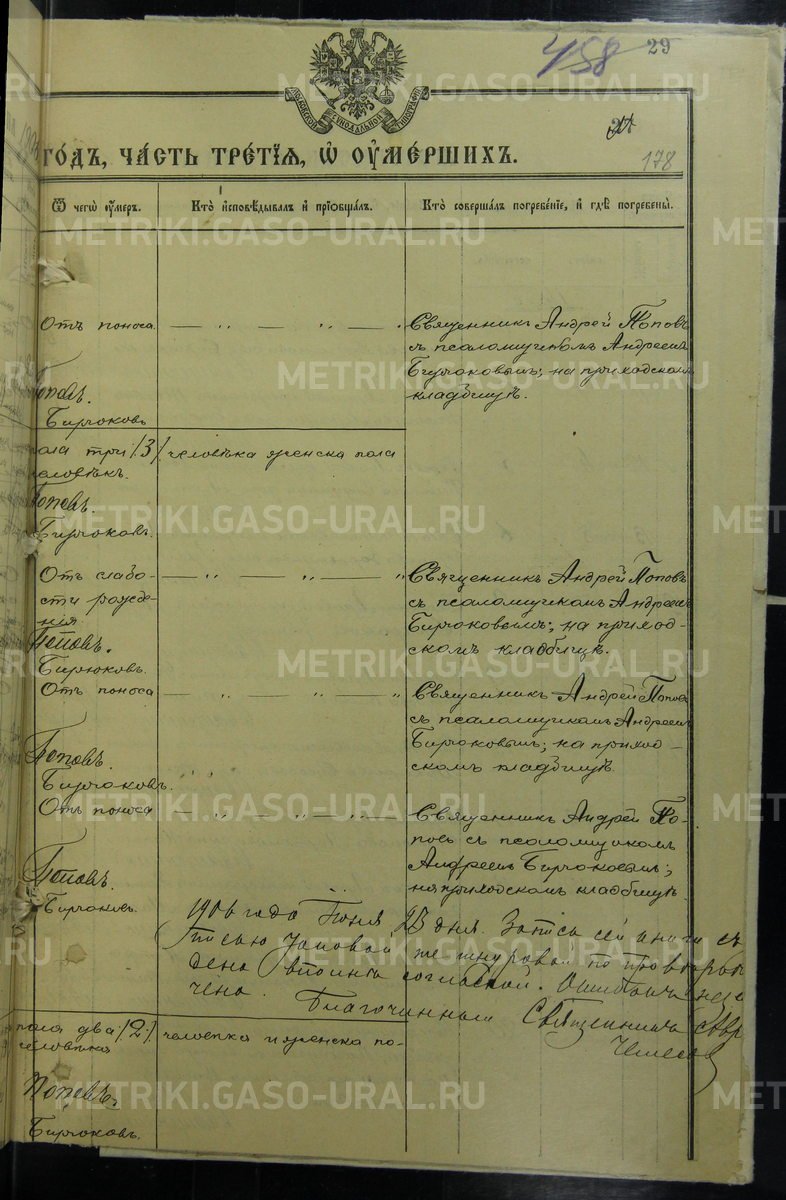 458
29
МОСКОВСКОЙ СѴНОДАЛЬНОЙ ТИПОГРАФІИ
178
го́дъ, ча́сть тре́тїѧ, ѡ҆ оу҆ме́ршихъ.
Ѿ чегѡ̀ оу҆ме́ръ.
Кто̀ и҆сповѣ́дывалъ и҆ прїѡбща́лъ.
Кто̀ соверша́лъ погребе́нїе, и҆ гдѣ̀ погребены̀.
Отъ поноса
Священникъ Андрей Поповъ
съ псаломщикомъ Андреемъ
Бирюковымъ; на приходскомъ
кладбищѣ.
Поповъ.
Бирюковъ
пола три /3/ человѣка женска пола
человѣкъ.
Поповъ.
Бирюковъ.
Отъ слабо-
сти рожде-
нія.
Священникъ Андрей Поповъ
съ псаломщикомъ Андреемъ
Бирюковымъ; на приход-
скомъ кладбищѣ.
Поповъ.
Бирюковъ.
Отъ поноса
Священникъ Андрей Поповъ
съ псаломщикомъ Андреемъ
Бирюковымъ; на приход-
скомъ кладбищѣ.
Поповъ.
Бирюковъ.
Отъ поноса
Священникъ Андрей По-
повъ съ псаломщикомъ
Андреемъ Бирюковымъ;
на приходскомъ кладбищѣ.
Поповъ.
Бирюковъ.
1906 года Іюня 23 дня. Запись сей книги съ
записью таковой же шнуровой по провѣркѣ
согласной. Ошибокъ не
Благочинный Священникъ
пола два /2/ человѣка и женска по-
человѣка
Поповъ.
Бирюковъ.
METRIKI.GASO-URAL.RU